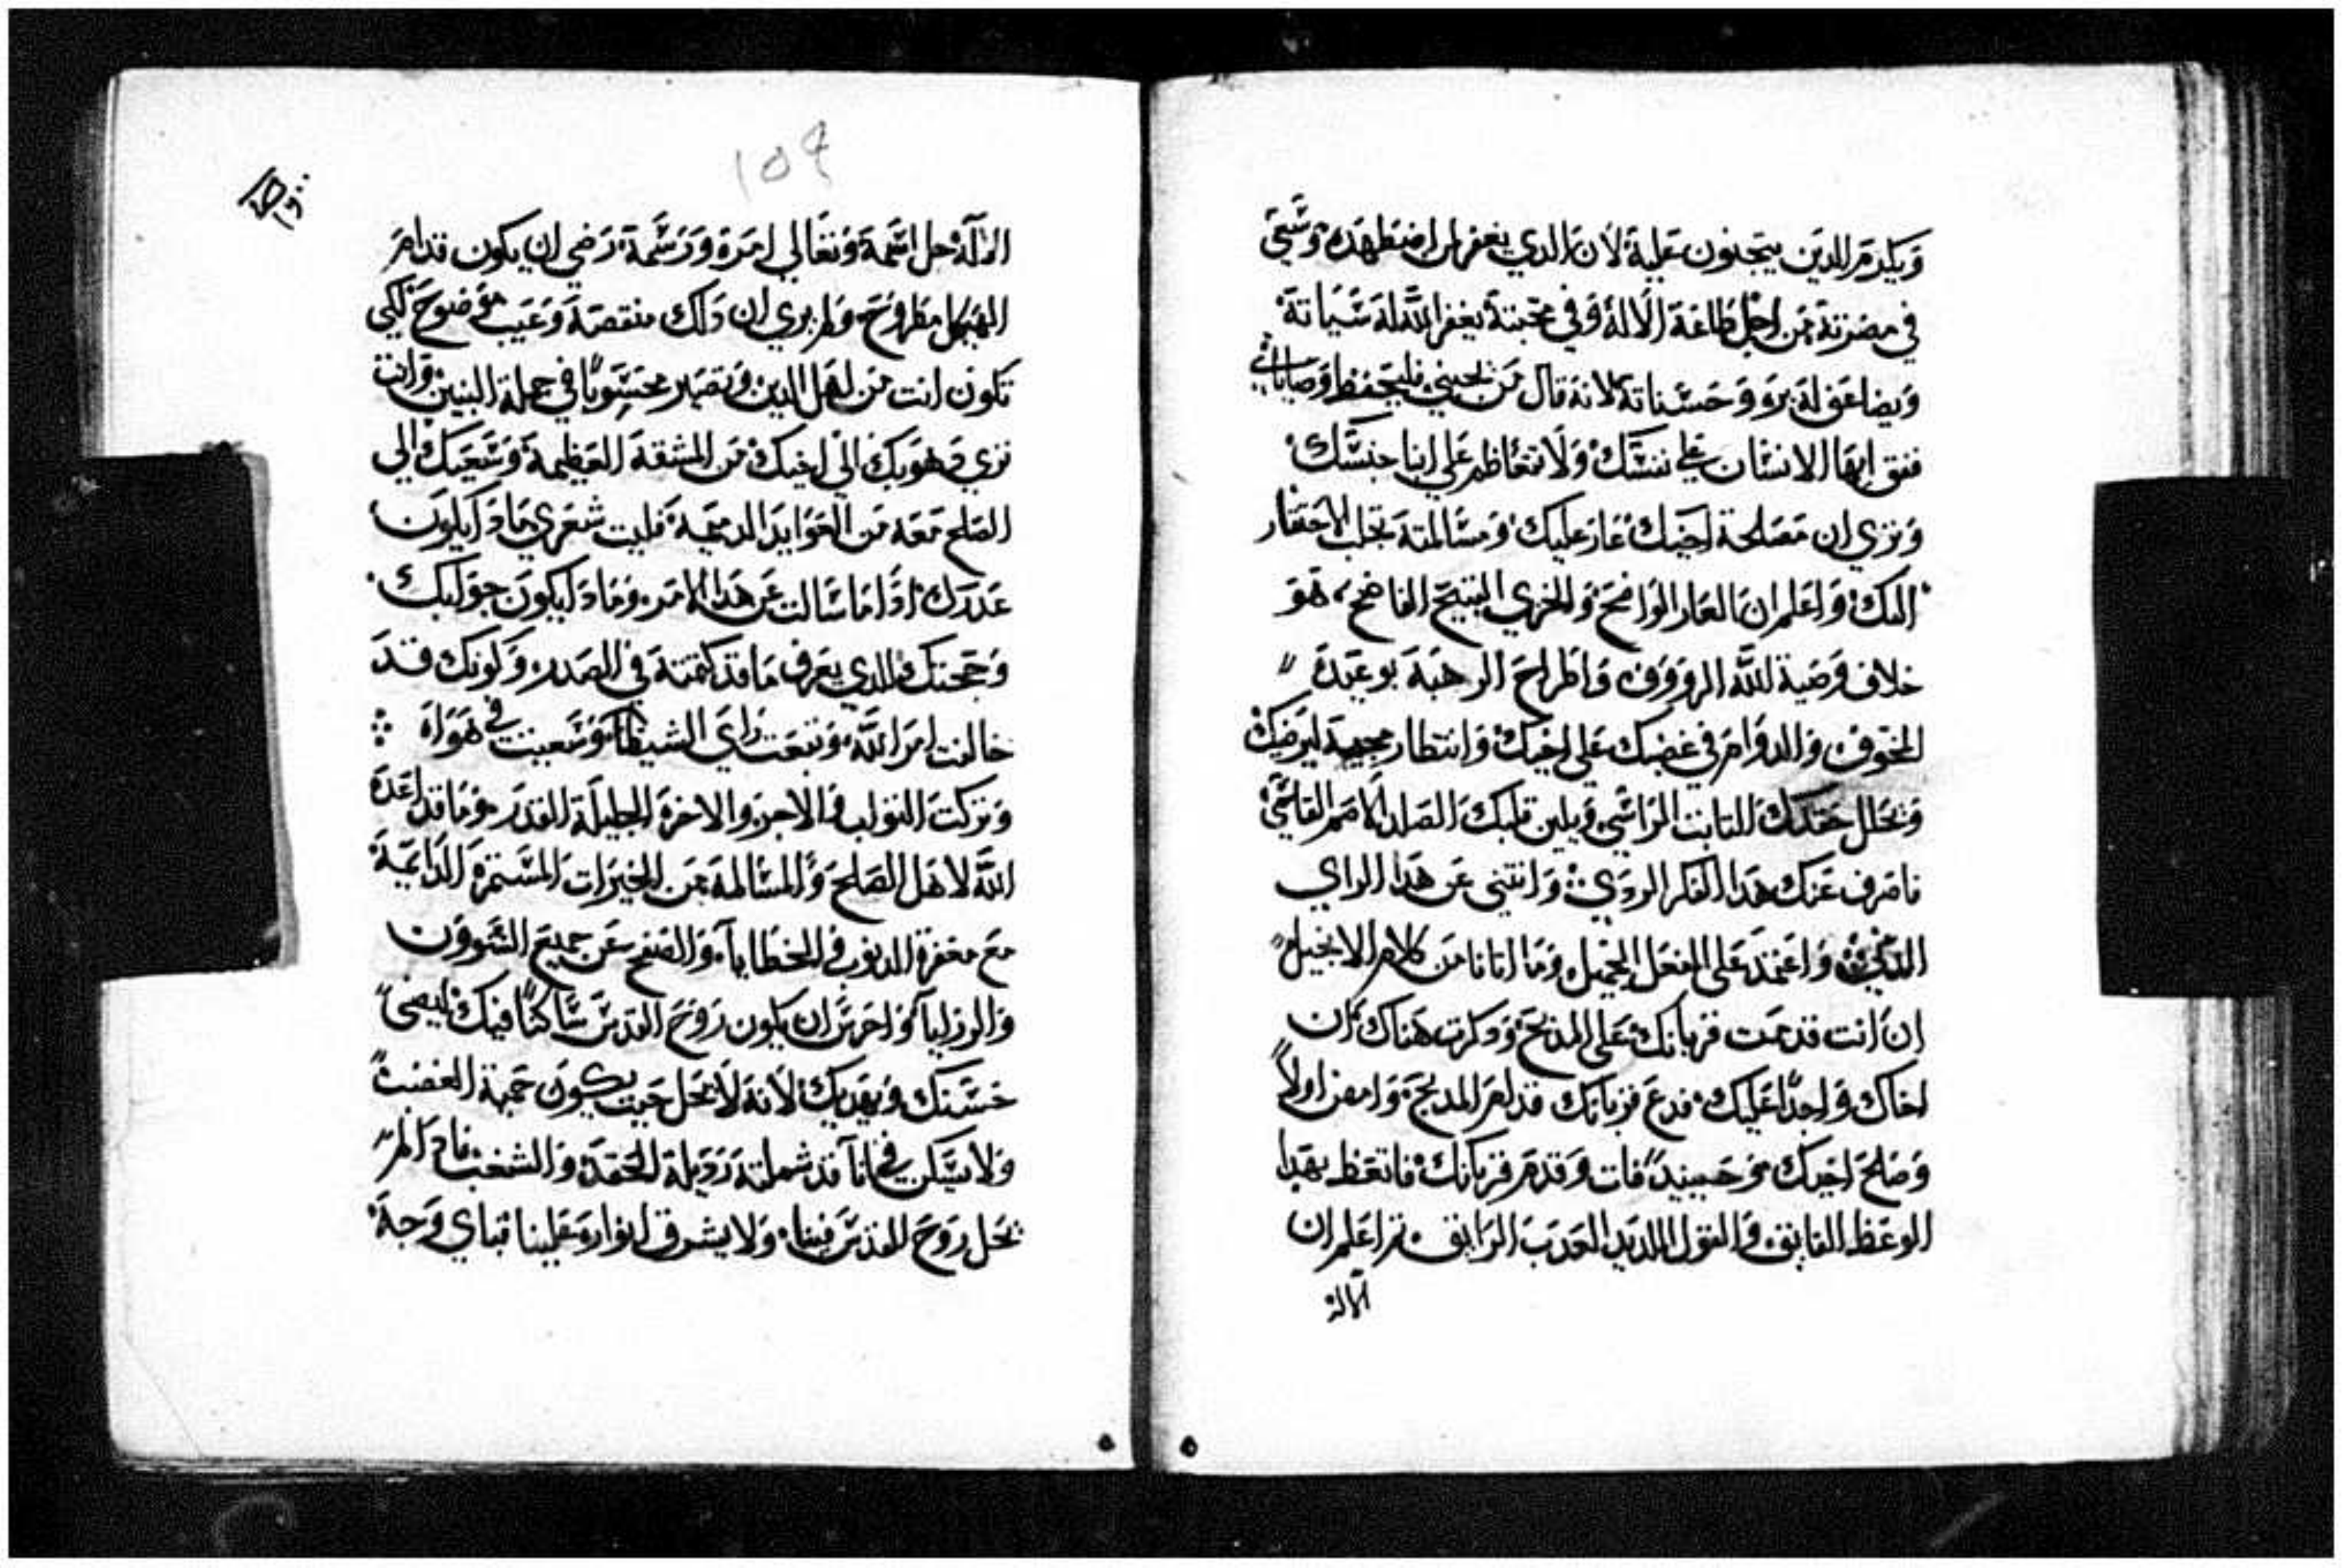 ويكرم الدين يتجنون علية لان الدي يغفر لمن اضطهده وسعي
في مضرتة من اجل طاعة الاله وفي محبتة يغفر الله له سياتة
ويضاعف له بره وحسناتة لانه قال من يحبني فليحفظ وصاياي
ايها الانسان علي نفسك ولا تتعاظم علي ابنا جنسك
وتري ان مصلحة اخيك عار عليك ومسالمتة تجلب الاحتقار
اليك واعلم ان العار الواضح والخزي القبيح الفاضح هو
خلاف وصية الله الرووف واطراح الرهبة بوعيدة
المخوف والدوام في غضبك علي اخيك وانتظار مجيية ليرضيك
وتحلل حقدك التابت الراسي ويلين قلبك الصلد الاصم القاسي
فاصرف عنك هدا الفكر الردي وانتني عن هدا الراي
واعتمد علي الفعل الجميل وما اتانا من كلام الانجيل
ان انت قدمت قربانك علي المدبح ودكرت هناك ان
اخاك واجدا عليك فدع قربانك قدام المدبح وامض اولا
وصلح اخيك وحينيد فات وقدم قربانك فاتعظ بهدا
الوعظ الفايق والقول اللديد العدب الرايق تم اعلم ان
الاله
١٥٩
الاله جل اسمة وتعالي امره ورسمة رضي ان يكون قدام
الهيكل مطروح ولم يري ان دلك منقصة وعيب مفضوح لكي
تكون انت من اهل الدين وتصير محسوبا في جملة البنين وانت
تري دهوبك الي اخيك من المشقة العظيمة وسعيك الي
الصلح معه من العوايد الدميمة فليت شعري مادا يكون
عدرك ادا ما سالت عن هدا الامر ومادا يكون جوابك
وحجتك والدي يعرف ما قد كتمتة في الصدر وكونك قد
خالفت امر الله وتبعت راي الشيطان وسعيت في هواه
وتركت التواب والاجر والاخرة الجليلة القدر وما قد اعده
الله لاهل الصلح والمسالمة من الخيرات المستمرة الدايمة
مع مغفرة الدنوب والخطايا والصفح عن جميع
والرزايا واحرس ان يكون روح القدس ساكنا فيك ليضي
حسنك ويهديك لانه لا يحل حيت يكون حمية الغضب
ولا يسكن في انا قد شملته رديلة الحقد والشغب فادا لم
تحل روح القدس فينا ولا يشرق انواره علينا فباي وجة